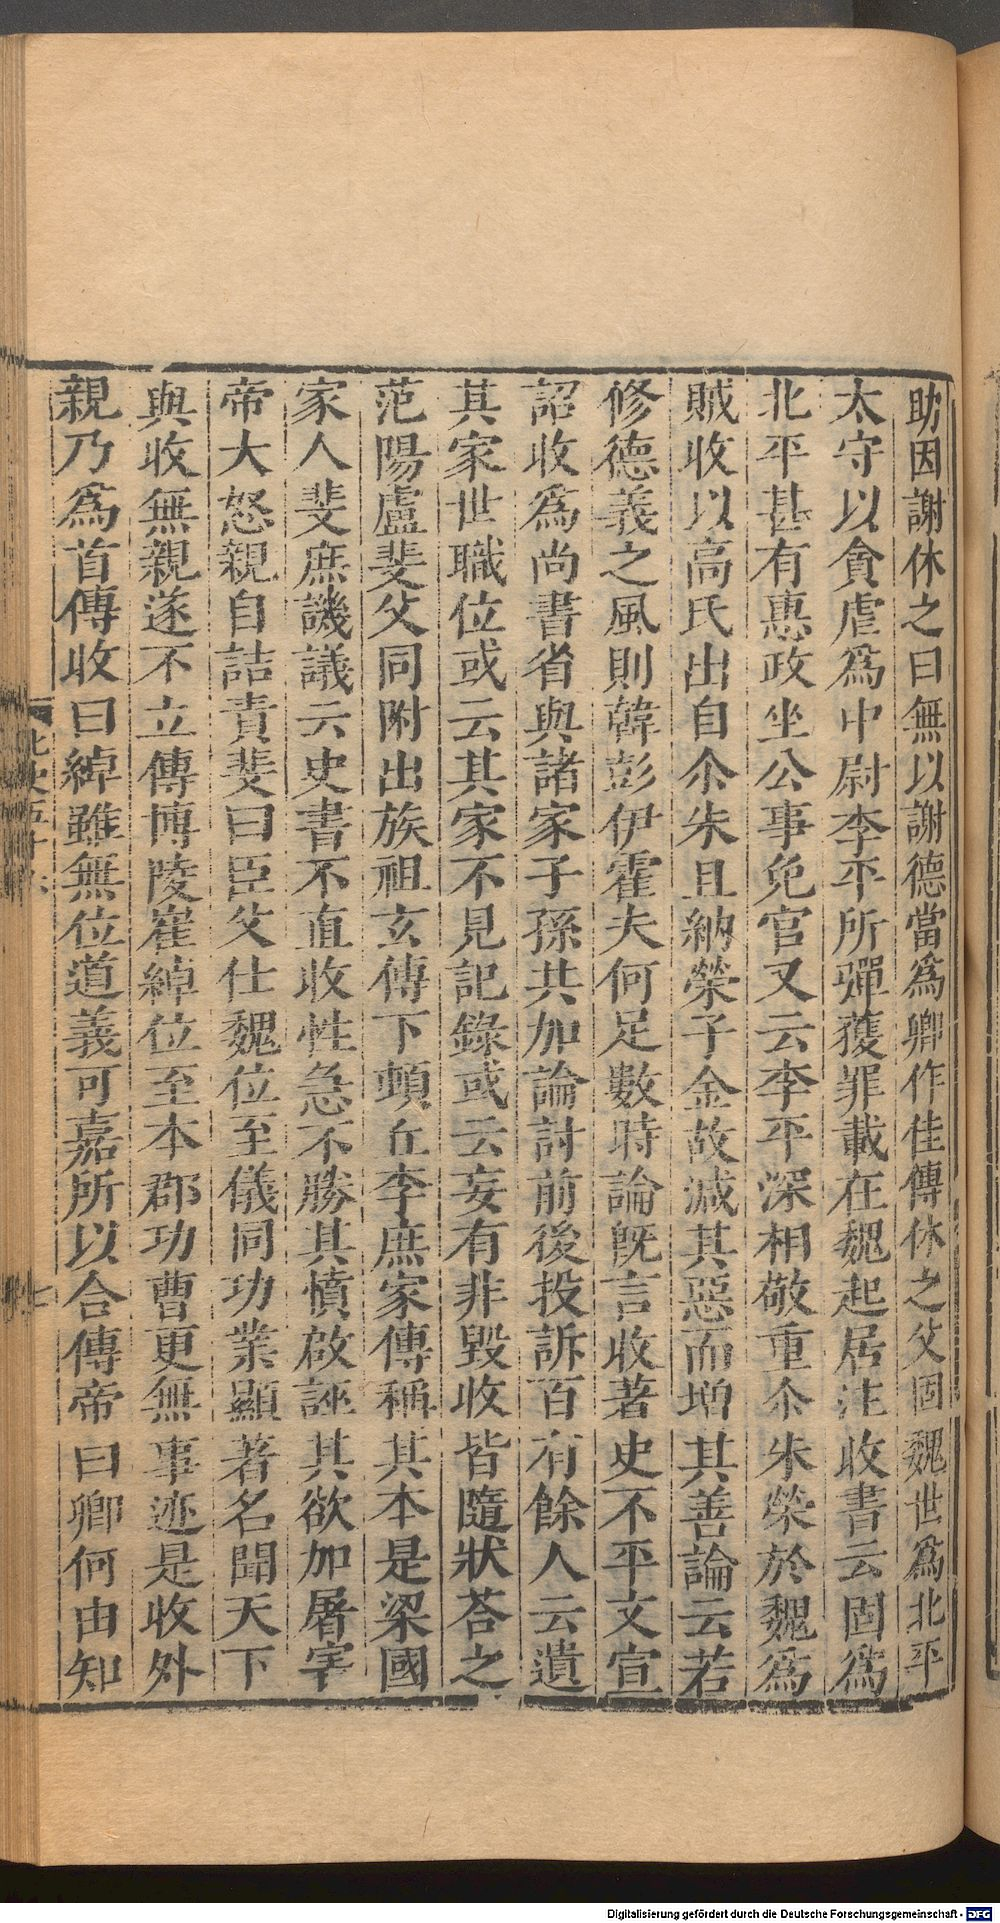 助因謝休之曰無以謝德當爲卿作佳傳休之父固魏世爲北平
太守以貪虐爲中尉李平所彈獲罪載在魏起居注收書云固爲
北平甚有惠政坐公事免官又云李平深相敬重尒朱榮於魏爲
賊收以高氏出自尒朱且納榮子金故減其惡而增其善論云若
修德義之風則韓彭伊霍夫何足數時論旣言收著史不平文宣
詔收爲尚書省與諸家子孫共加論討前後投訴百有餘人云遺
其家世職位或云其家不見記錄或云妄有非毀收皆隨狀荅之
范陽盧斐父同附出族祖玄傳下頓丘李庶家傳稱其本是梁國
家人斐庶譏議云史書不直收性急不勝其憤啟誣其欲加屠害
帝大怒親自詰責斐曰臣父仕魏位至儀同功業顯著名聞天下
與收無親遂不立傳博陵崔綽位至本郡功曹更無事迹是收外
親乃爲首傳收曰綽雖無位道義可嘉所以合傳帝曰卿何由知
北史五十六
七
Digitalisierung gefördert durch die Deutsche Forschungsgemeinschaft - DFG